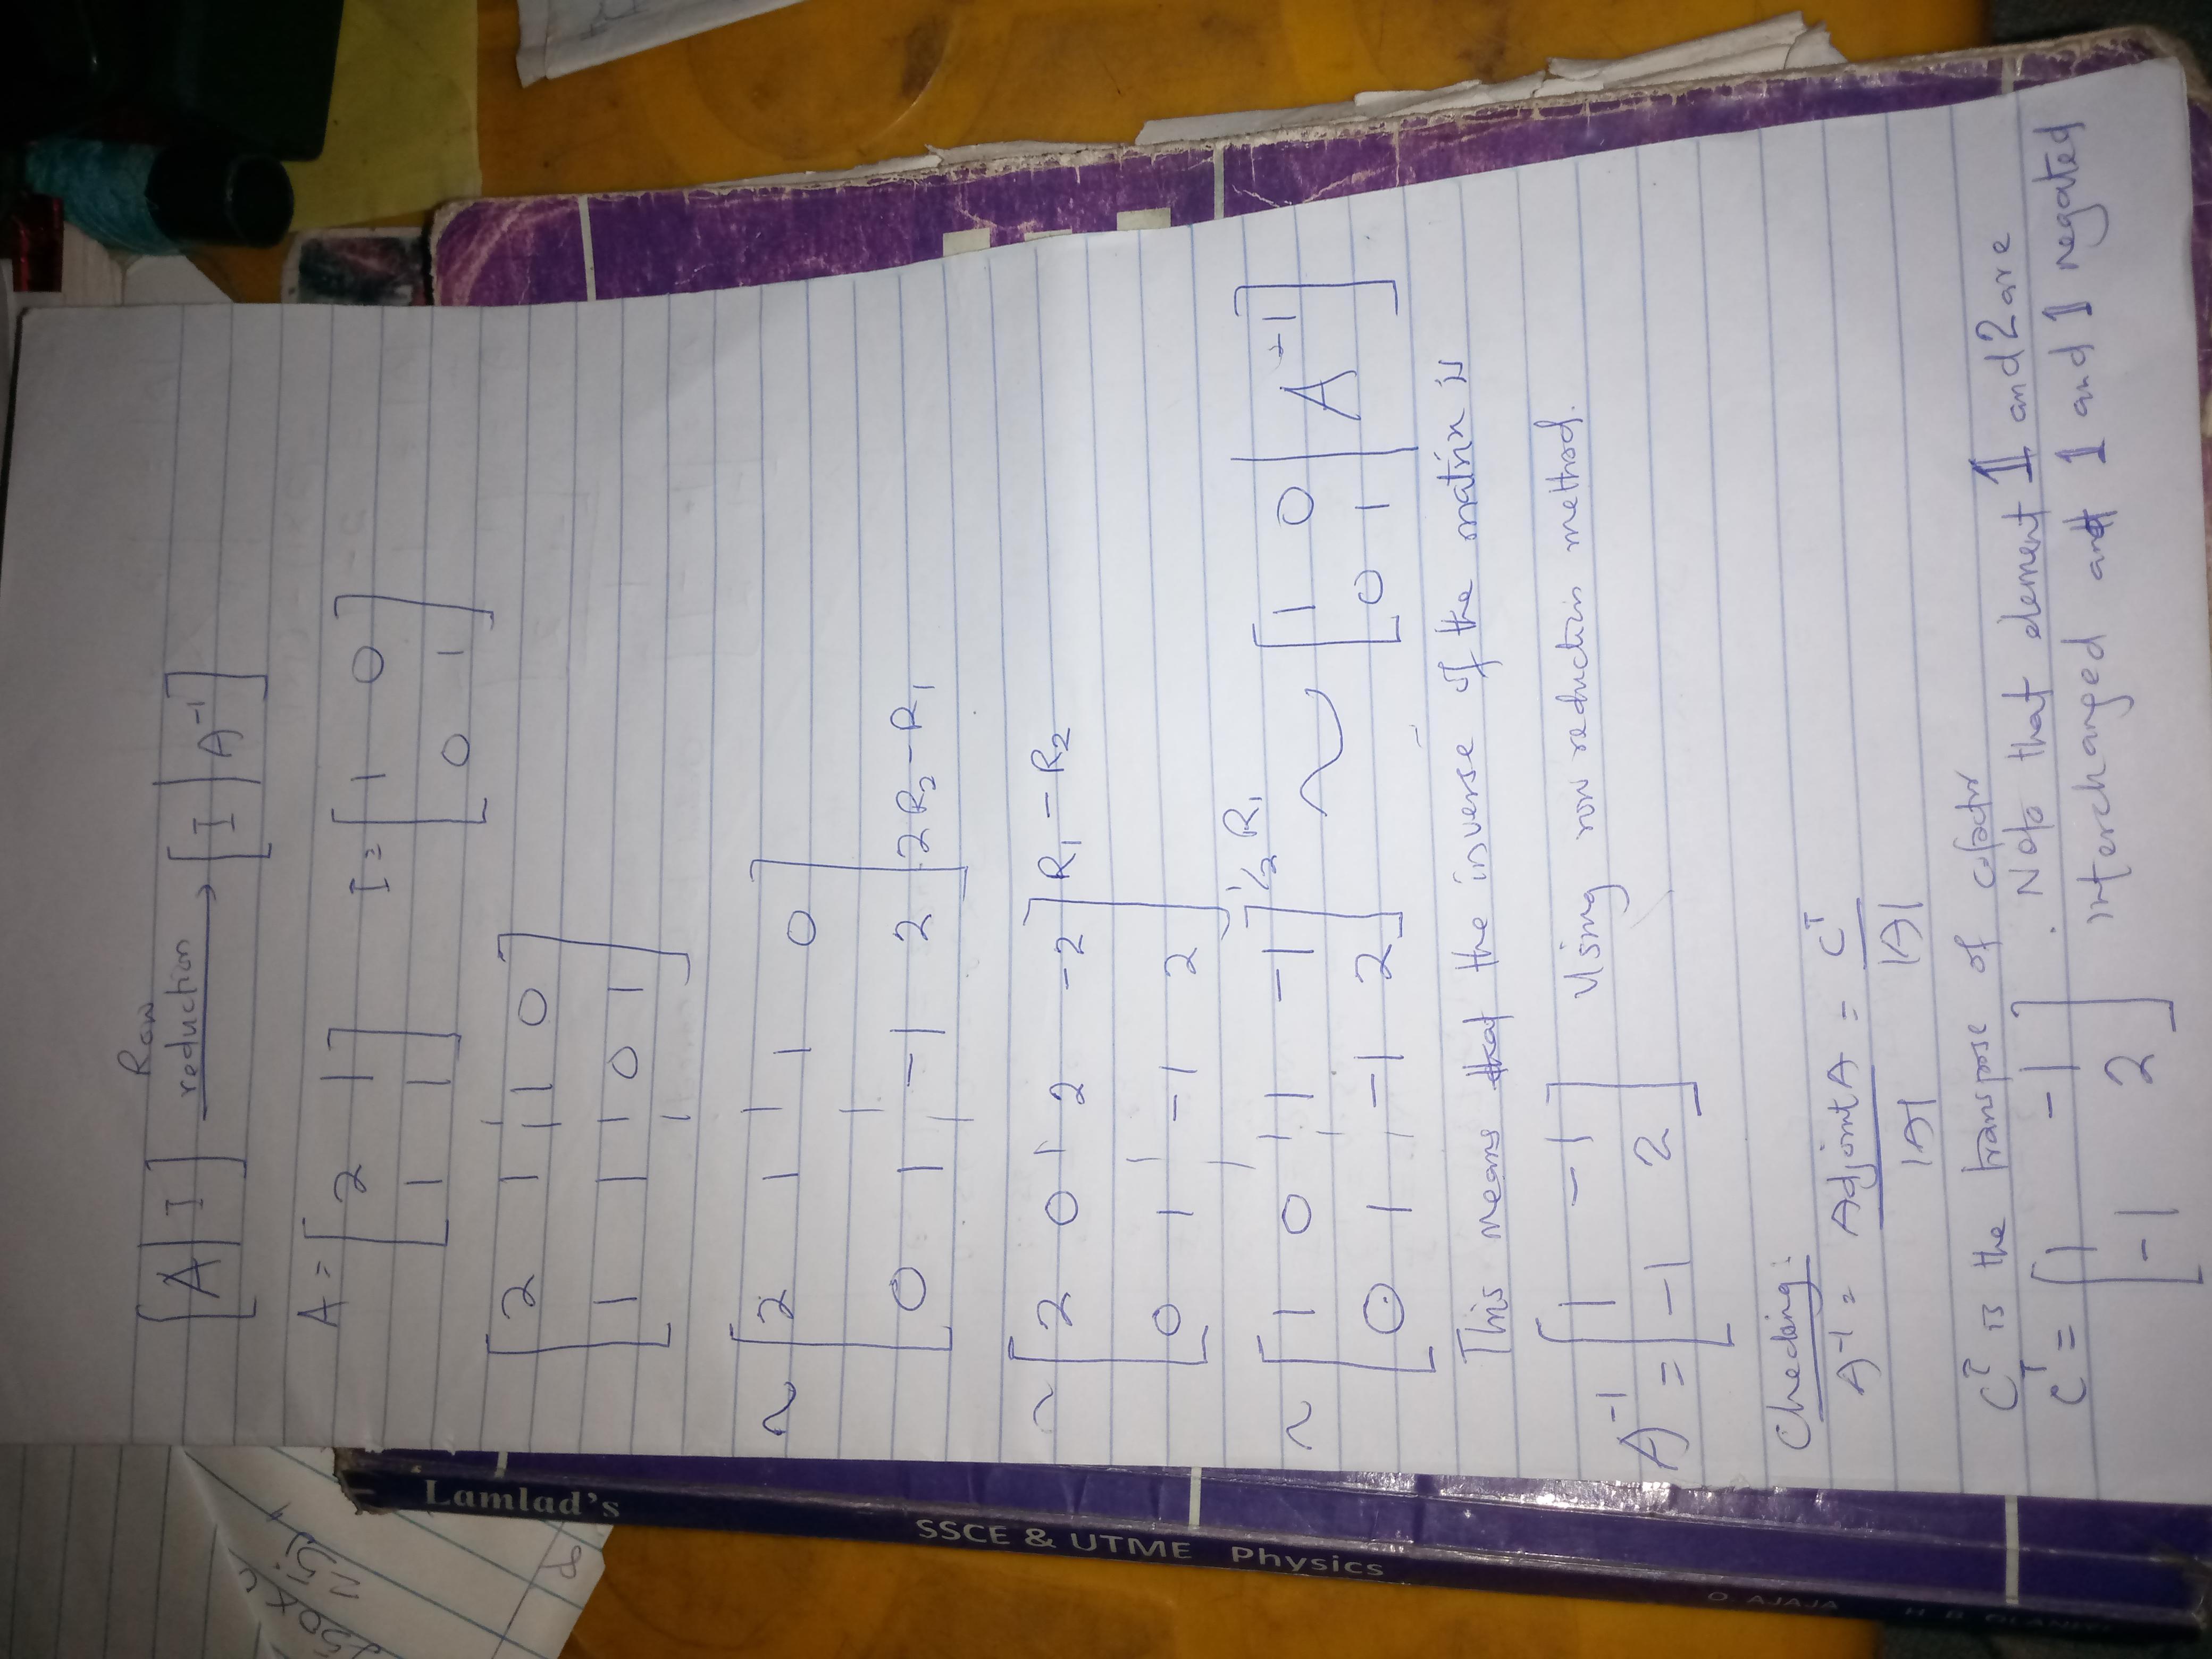 Row
[A | I] reduction → [I | A⁻¹]
A = [2 1
1 1] I = [1 0
0 1]
[2 1 | 1 0
1 1 | 0 1]
~ [2 1 | 1 0
0 1 | -1 2] 2R₂ - R₁
~ [2 0 | 2 -2] R₁ - R₂
0 1 | -1 2]
~ [1 0 | 1 -1] ½ R₁ ~ [1 0 | A⁻¹]
0 1 | -1 2] [0 1 |
This means that the inverse of the matrix is
A⁻¹ = [1 -1
-1 2] Using row reduction method.
Checking:
A⁻¹ = Adjoint A / |A| = Cᵀ / |A|
Cᵀ is the transpose of cofactor
Cᵀ = [1 -1
-1 2] . Note that element 1 and 2 are
interchanged and 1 and 1 negated
Lamlad's
SSCE & UTME Physics
O. AJAJA